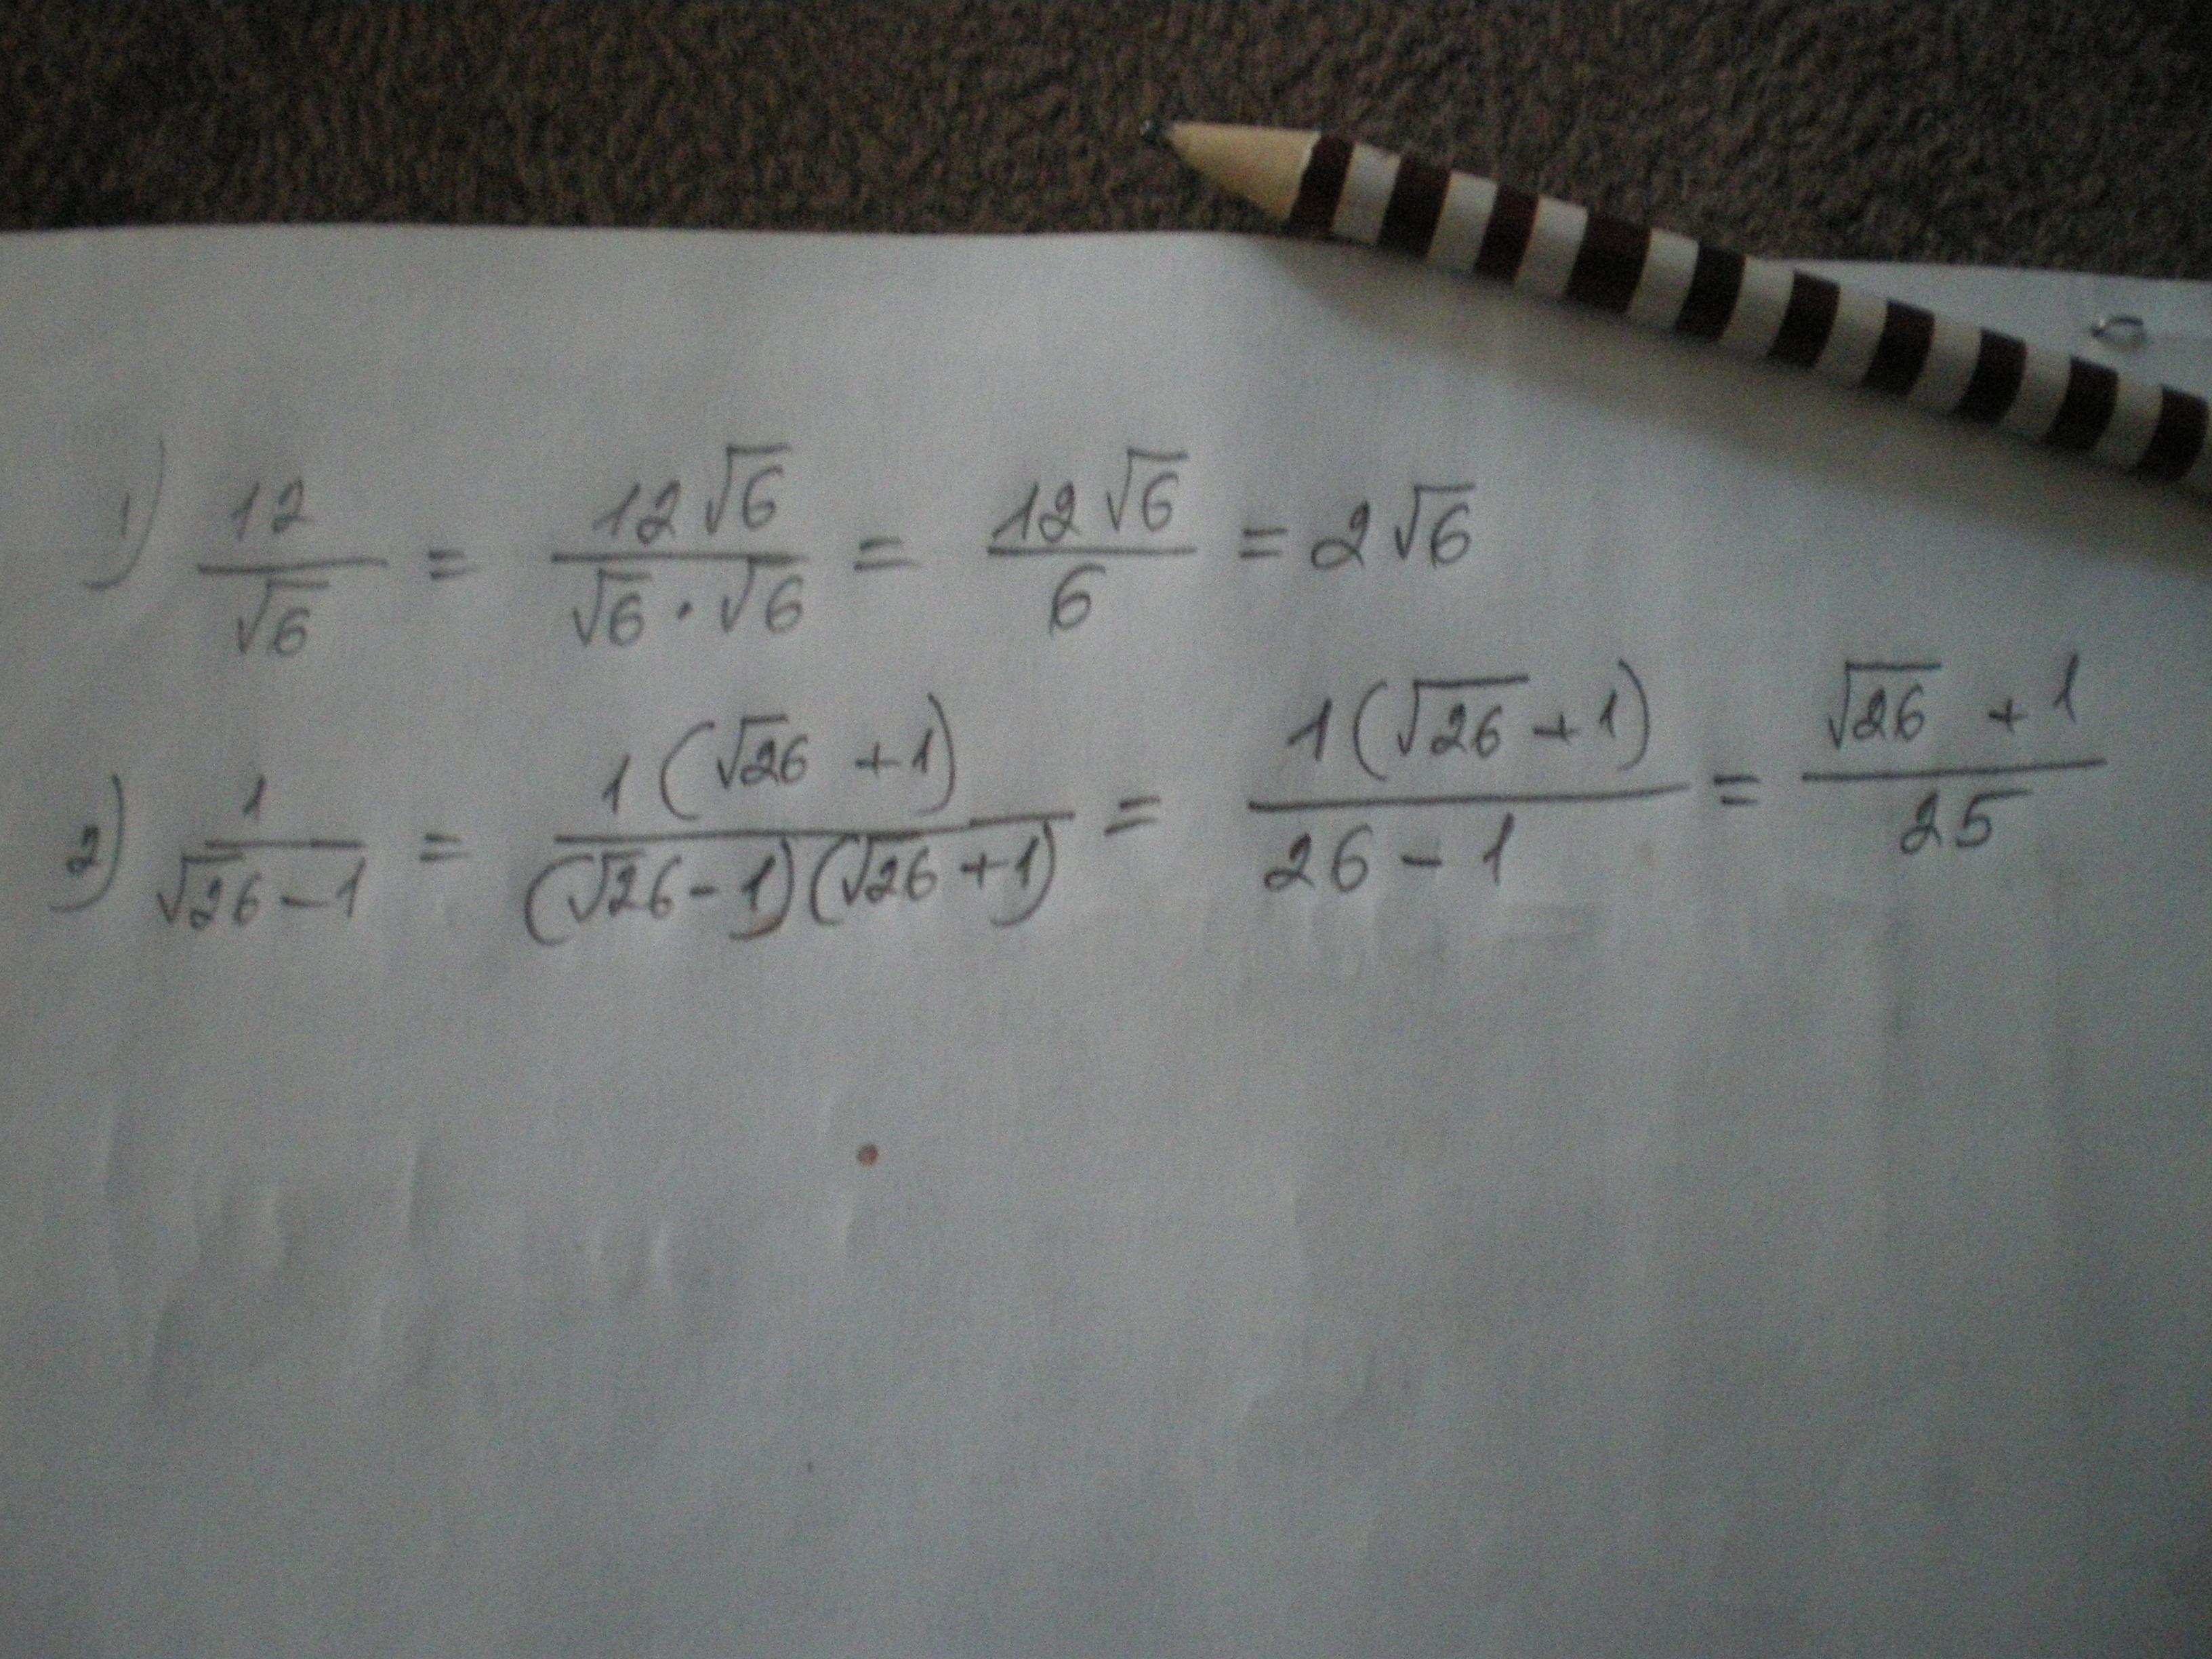 1) 12/√6 = 12√6/(√6·√6) = 12√6/6 = 2√6
2) 1/(√26-1) = 1(√26+1)/((√26-1)(√26+1)) = 1(√26+1)/(26-1) = (√26+1)/25